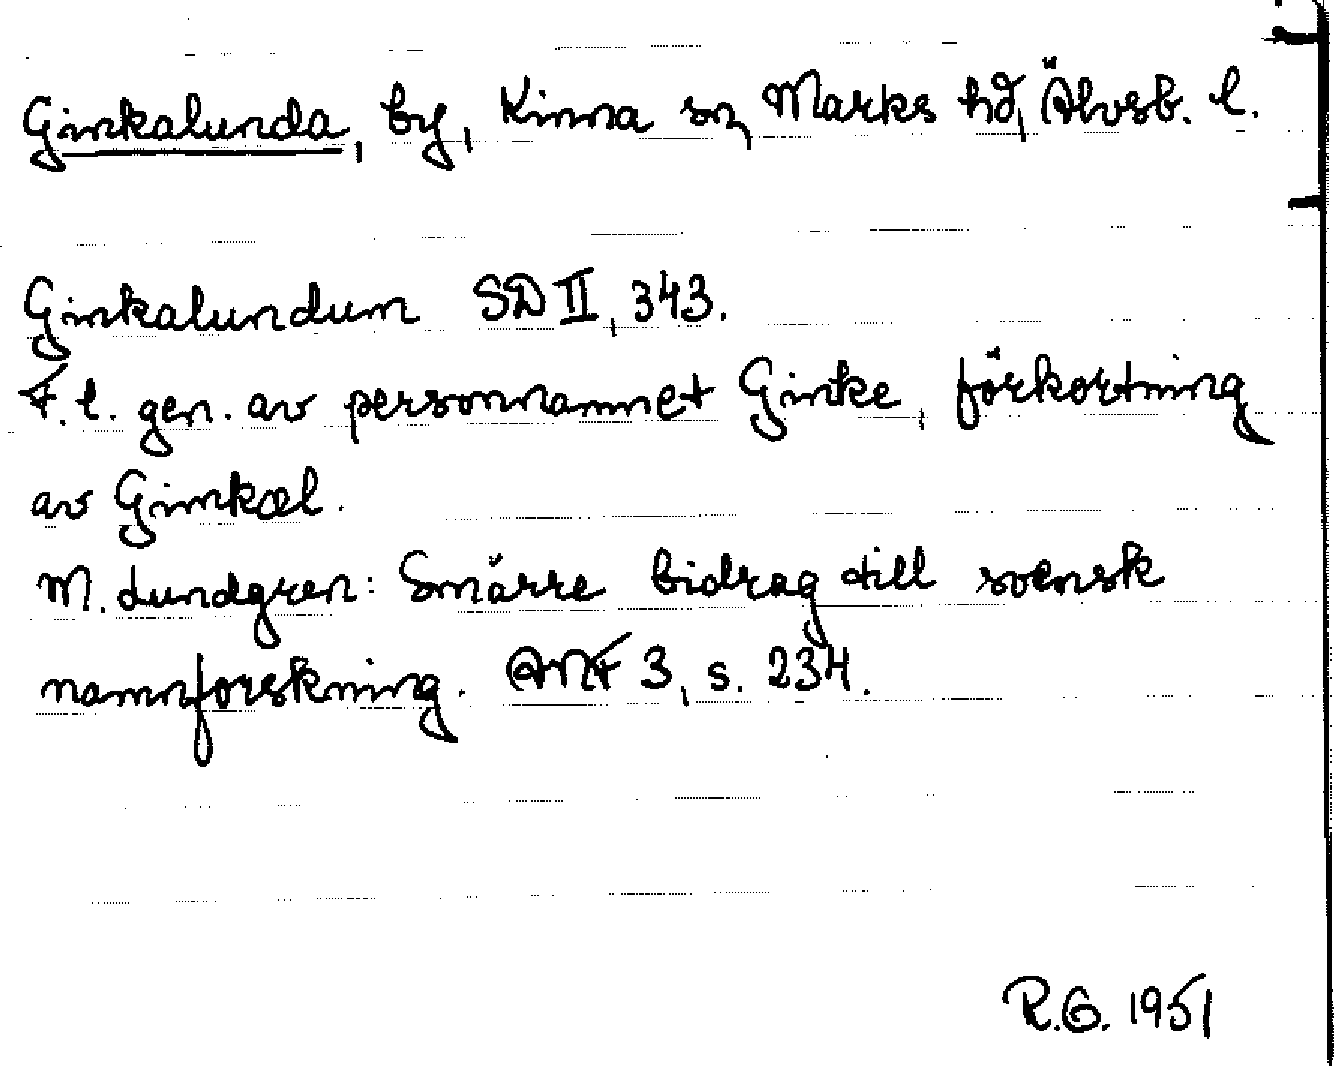 Ginkalunda, by, Kinna sn, Marks hd, Älvsb. l.
Ginkalundum SD II, 343.
F. l. gen. av personnamnet Ginke, förkortning
av Ginkæl.
M. Lundgren: Smärre bidrag till svensk
namnforskning. ANF 3, s. 234.
R.G. 1951